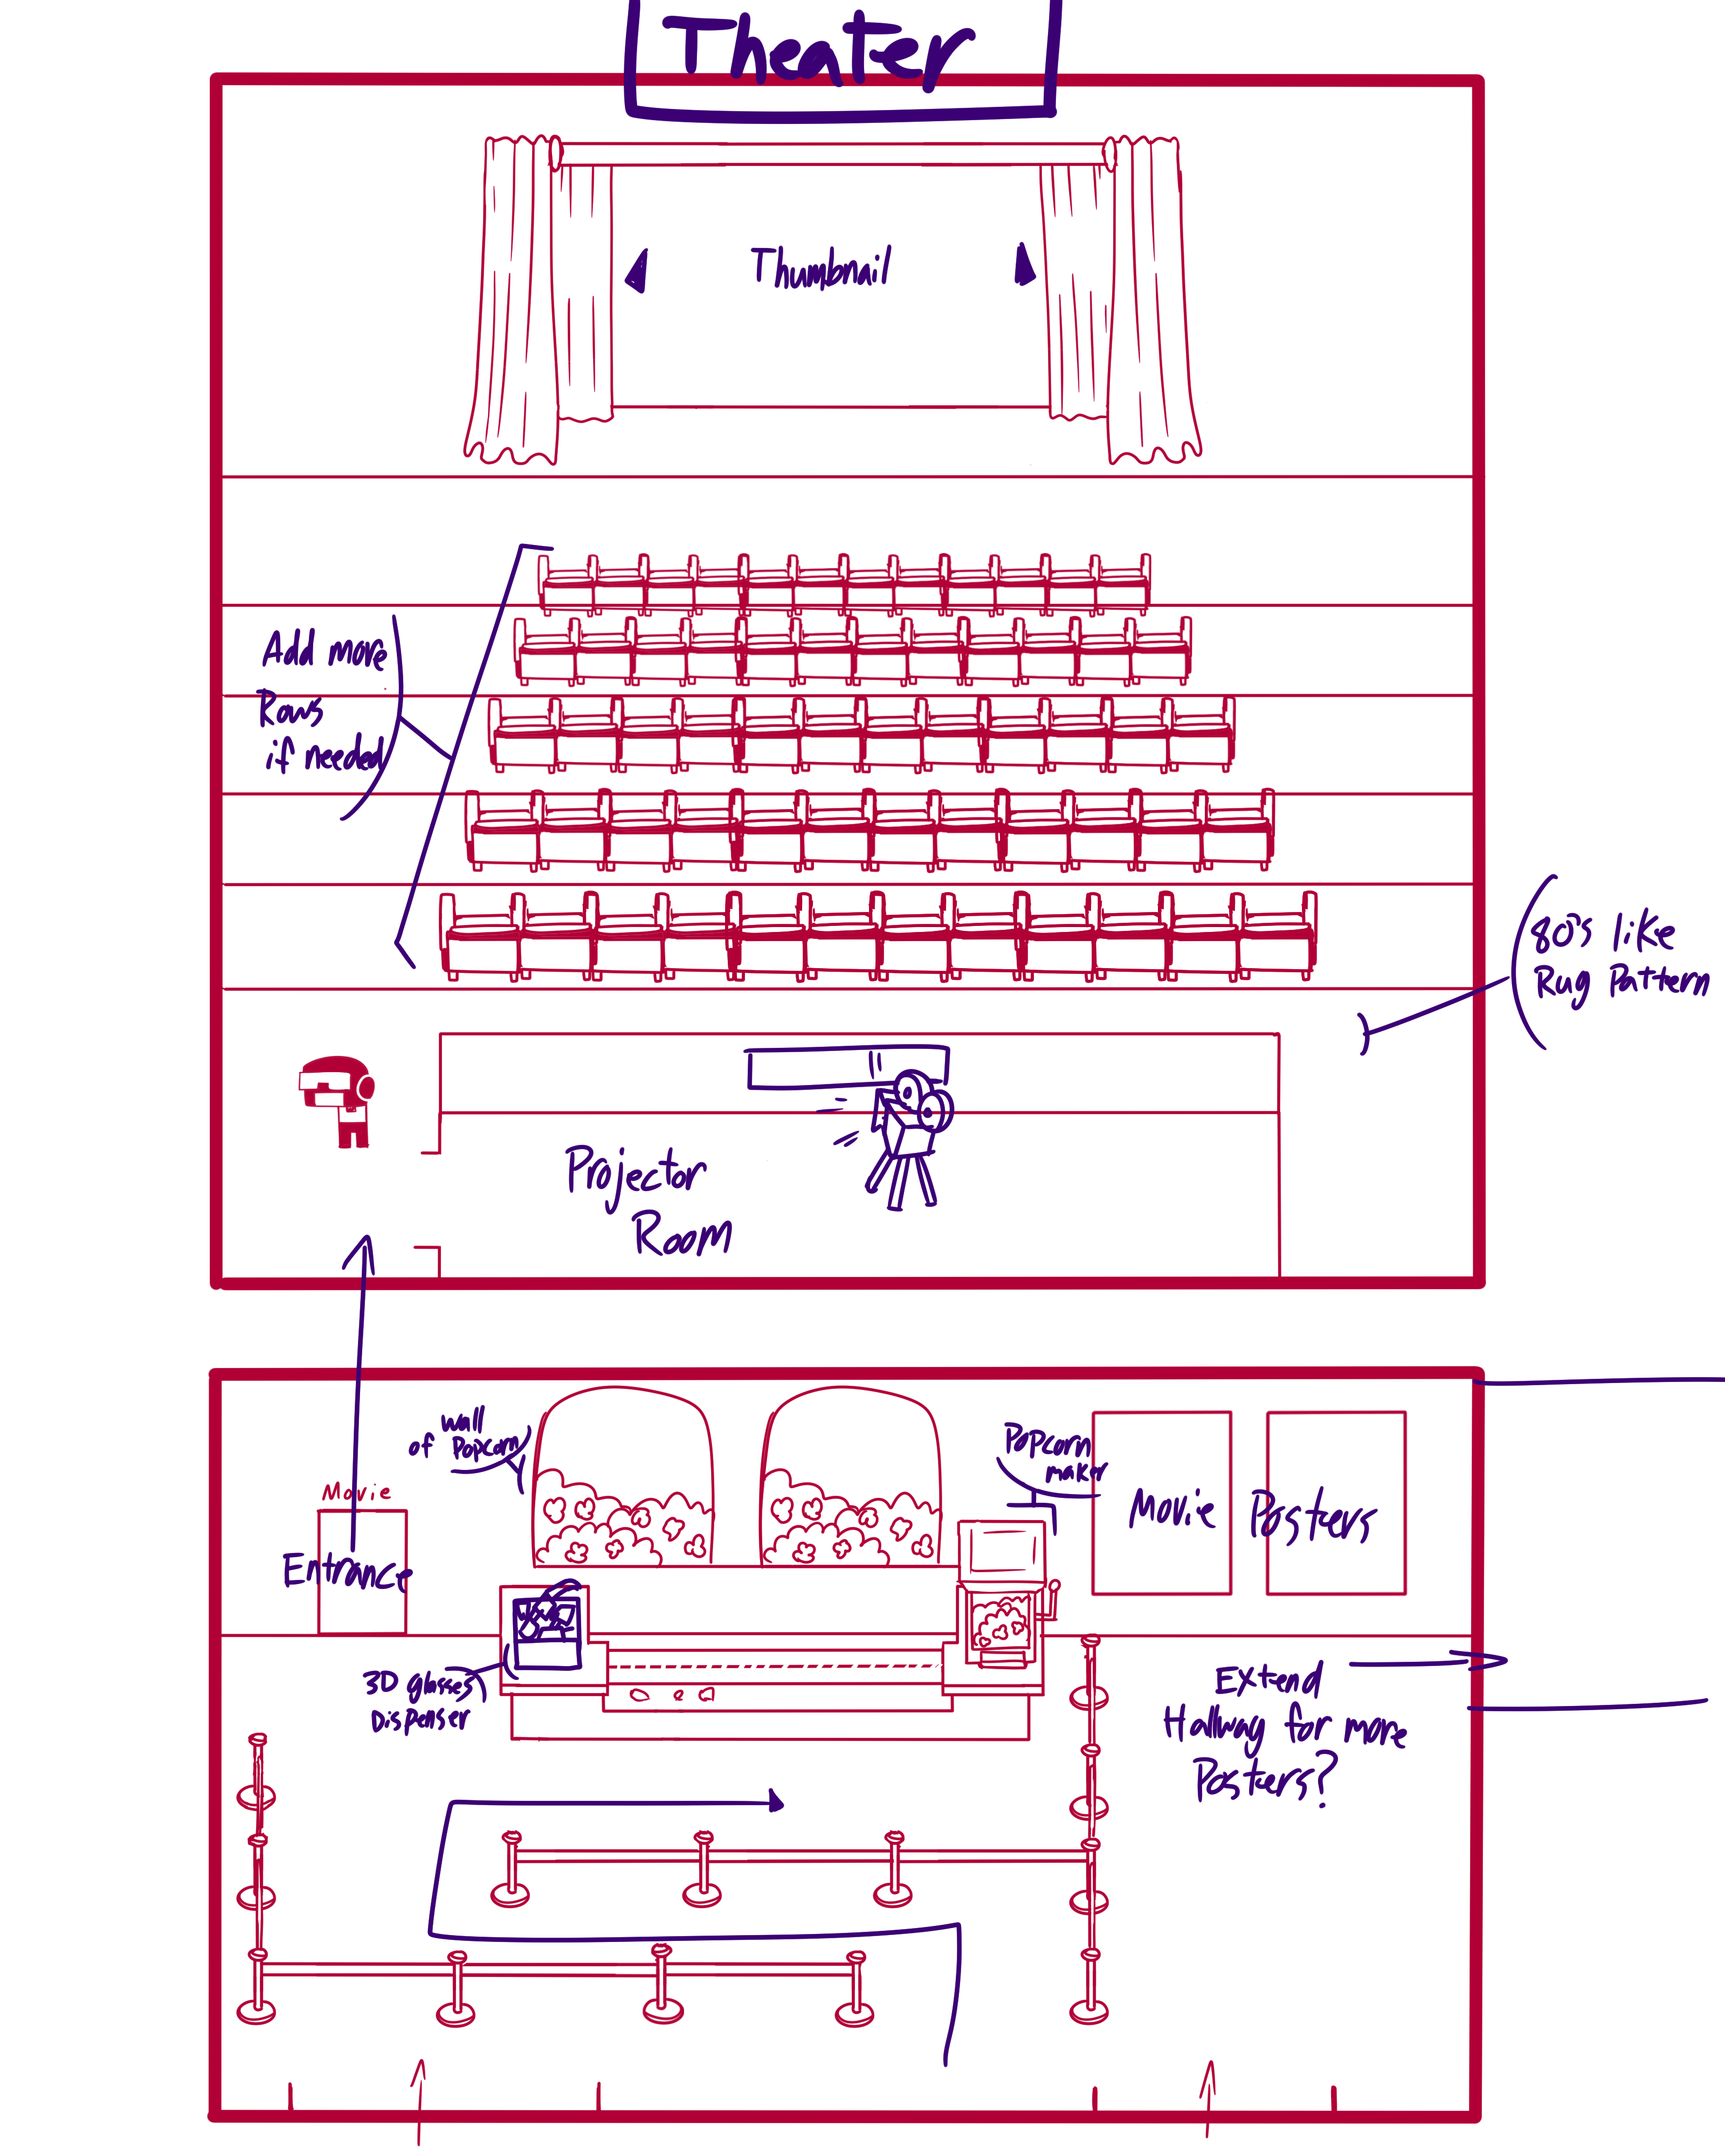 Theater
Thumbnail
Add more
Rows
if needed
80's like
Rug Pattern
Projector
Room
wall
of Popcorn
Popcorn
maker
Movie
Entrance
Movie Posters
3D glasses
Dispenser
Extend
Hallway for more
Posters?